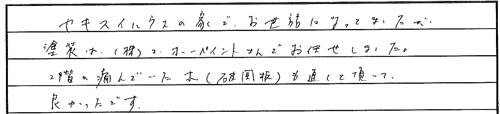 セキスイハウスの家で、お世話になってましたが、
塗装は、(株)ユーペイントさんでお任せしました。
2階の痛んでいた木(破風板)も直して頂いて、
良かったです。